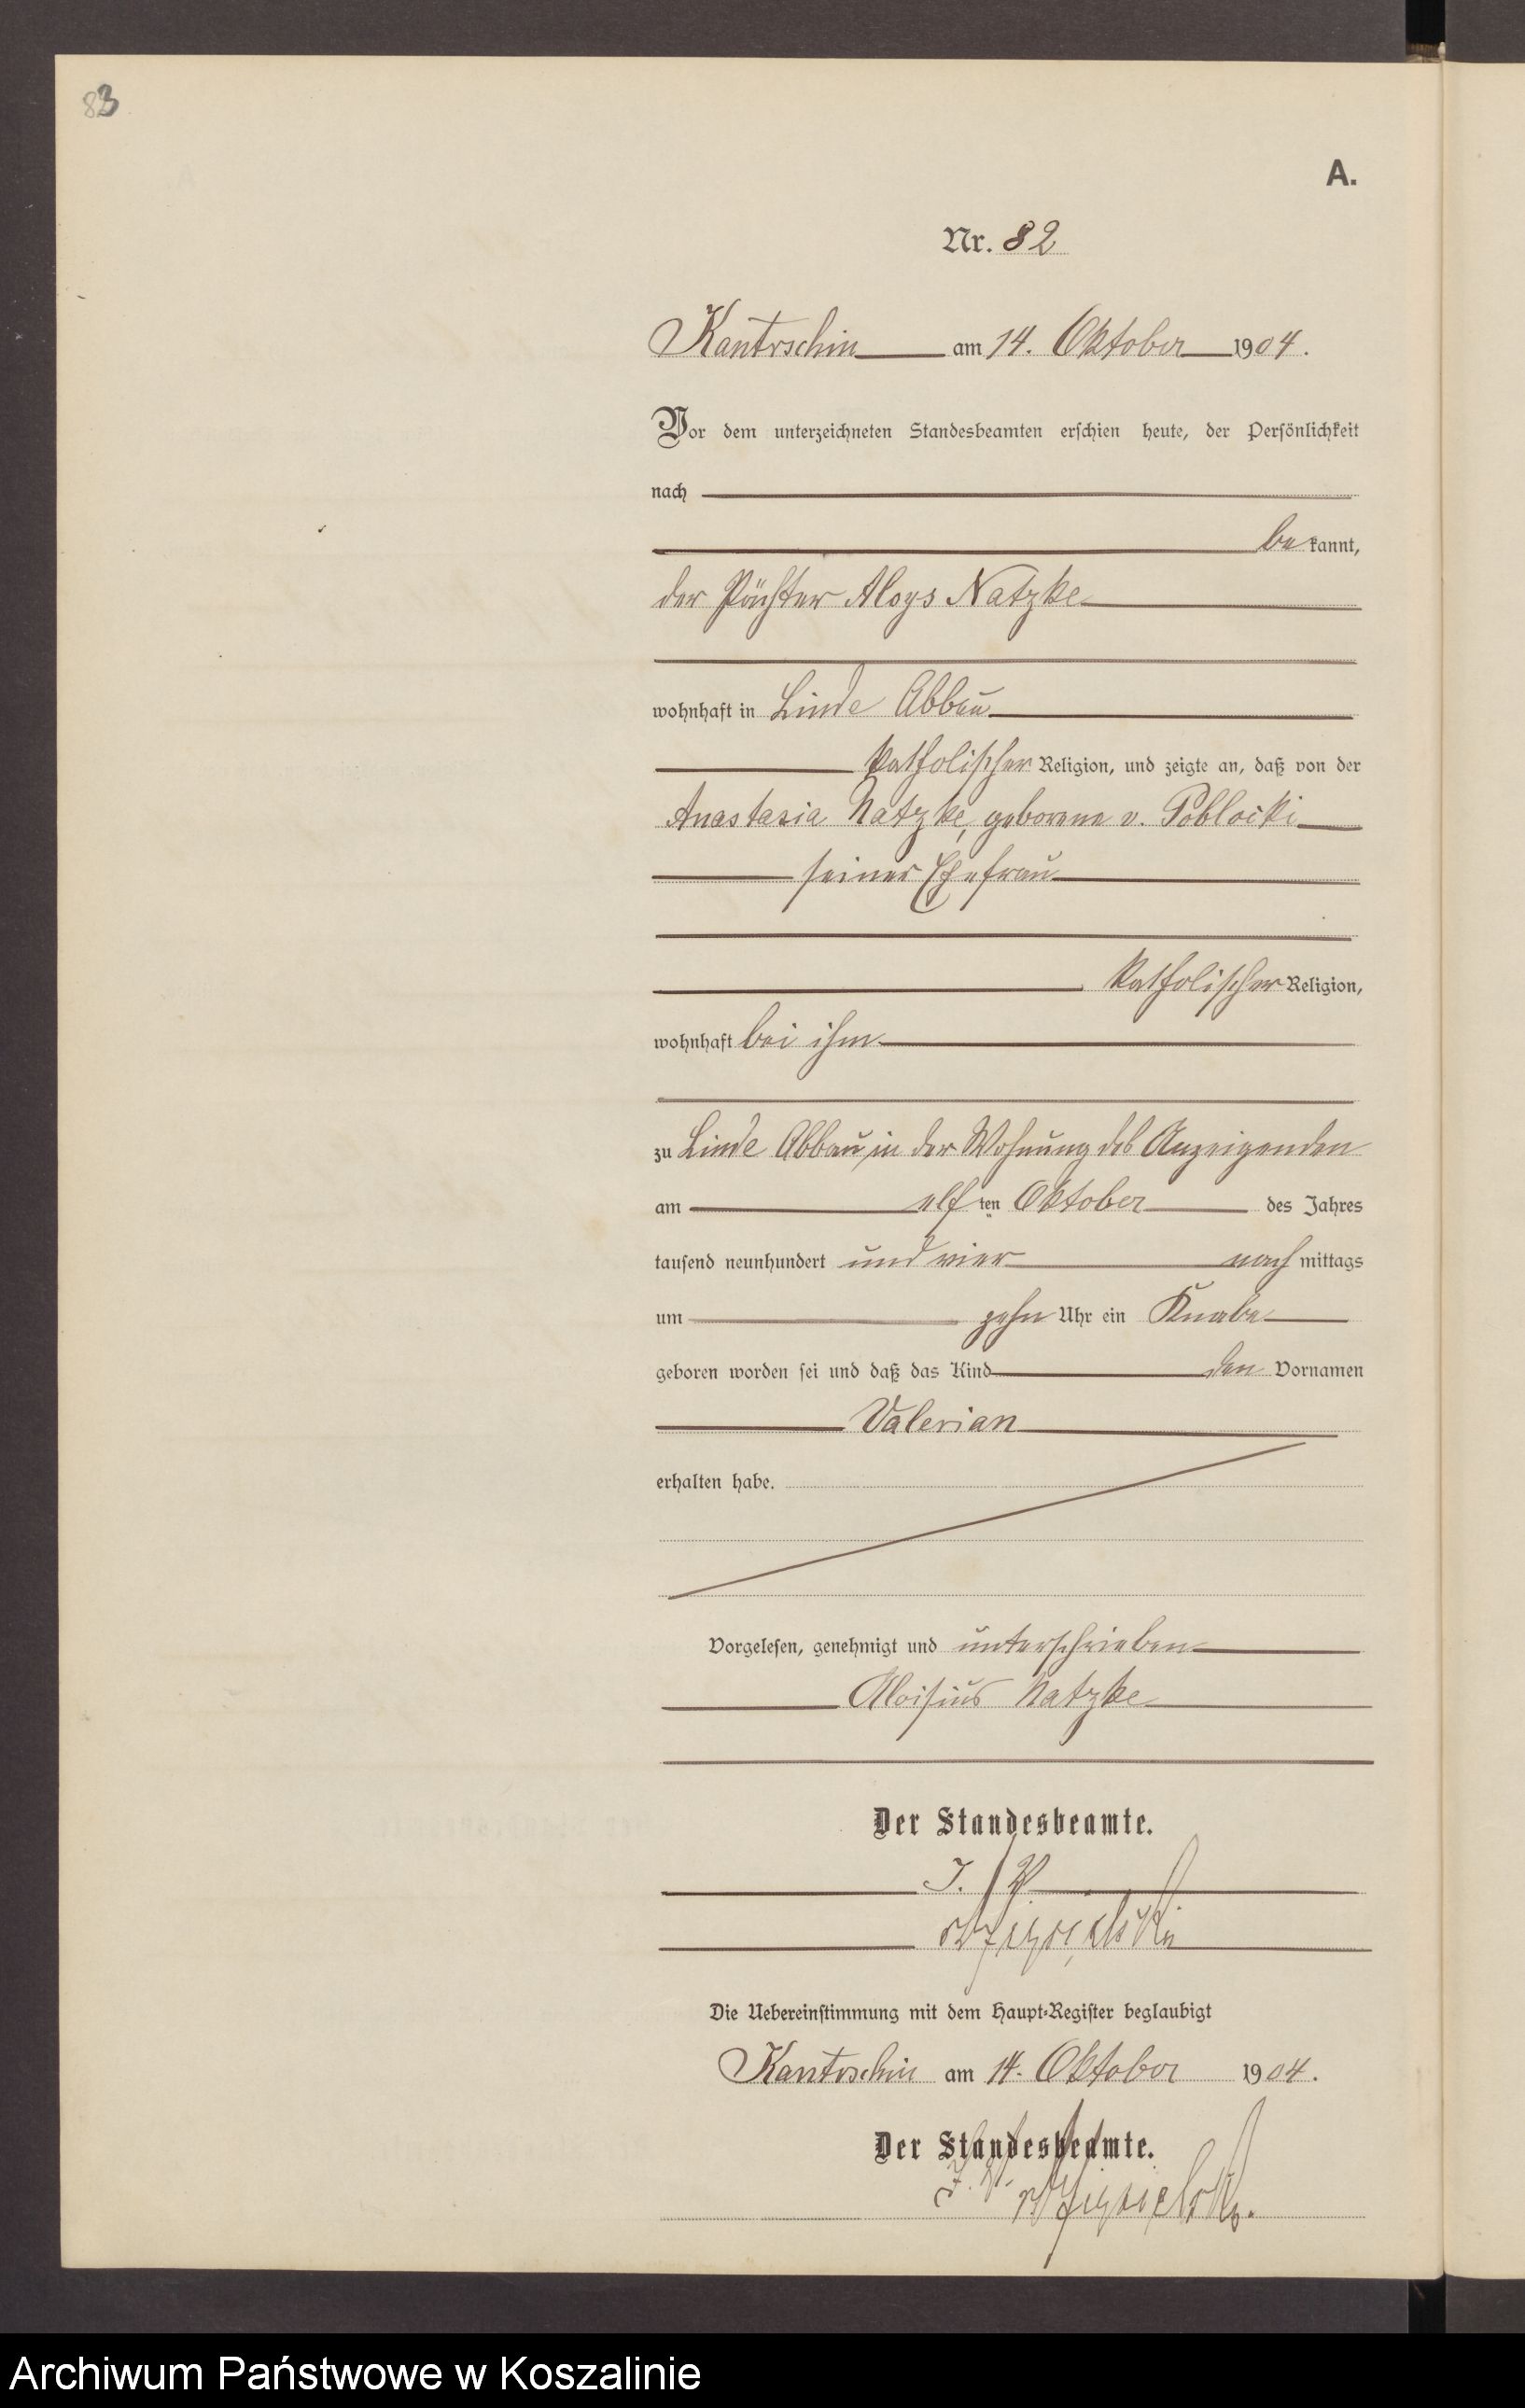 83
A.
Nr. 82
Kantrschin am 14. Oktober 1904.
Vor dem unterzeichneten Standesbeamten erschien heute, der Persönlichkeit
nach
bekannt,
der Pächter Aloys Natzke
wohnhaft in Linde Abbau
katholischer Religion, und zeigte an, daß von der
Anastasia Natzke, geborene v. Poblocki
seiner Ehefrau
katholischer Religion,
wohnhaft bei ihm
zu Linde Abbau, in der Wohnung des Anzeigenden
am elften Oktober des Jahres
tausend neunhundert und vier nachmittags
um zehn Uhr ein Knabe
geboren worden sei und daß das Kind den Vornamen
Valerian
erhalten habe.
Vorgelesen, genehmigt und unterschrieben
Aloisius Natzke
Der Standesbeamte.
J. V.
Die Uebereinstimmung mit dem Haupt-Register beglaubigt
Kantrschin am 14. Oktober 1904.
Der Standesbeamte.
J. V.
Archiwum Państwowe w Koszalinie